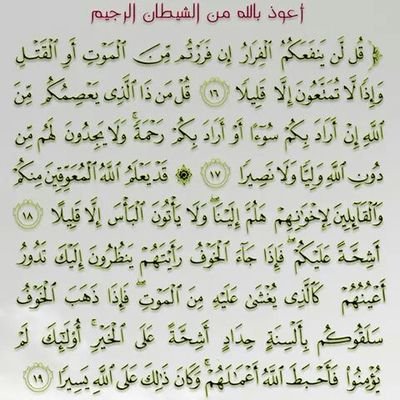 أعوذ بالله من الشيطان الرجيم
قُل لَّن يَنفَعَكُمُ ٱلْفِرَارُ إِن فَرَرْتُم مِّنَ ٱلْمَوْتِ أَوِ ٱلْقَتْلِ
وَإِذًا لَّا تُمَتَّعُونَ إِلَّا قَلِيلًا ١٦ قُلْ مَن ذَا ٱلَّذِى يَعْصِمُكُم مِّنَ
ٱللَّهِ إِنْ أَرَادَ بِكُمْ سُوٓءًا أَوْ أَرَادَ بِكُمْ رَحْمَةً ۚ وَلَا يَجِدُونَ لَهُم مِّن
دُونِ ٱللَّهِ وَلِيًّا وَلَا نَصِيرًا ١٧ ۞ قَدْ يَعْلَمُ ٱللَّهُ ٱلْمُعَوِّقِينَ مِنكُمْ
وَٱلْقَآئِلِينَ لِإِخْوَٰنِهِمْ هَلُمَّ إِلَيْنَا ۖ وَلَا يَأْتُونَ ٱلْبَأْسَ إِلَّا قَلِيلًا ١٨
أَشِحَّةً عَلَيْكُمْ ۖ فَإِذَا جَآءَ ٱلْخَوْفُ رَأَيْتَهُمْ يَنظُرُونَ إِلَيْكَ تَدُورُ
أَعْيُنُهُمْ كَٱلَّذِى يُغْشَىٰ عَلَيْهِ مِنَ ٱلْمَوْتِ ۖ فَإِذَا ذَهَبَ ٱلْخَوْفُ
سَلَقُوكُم بِأَلْسِنَةٍ حِدَادٍ أَشِحَّةً عَلَى ٱلْخَيْرِ ۚ أُو۟لَٰٓئِكَ لَمْ
يُؤْمِنُوا۟ فَأَحْبَطَ ٱللَّهُ أَعْمَٰلَهُمْ ۚ وَكَانَ ذَٰلِكَ عَلَى ٱللَّهِ يَسِيرًا ١٩